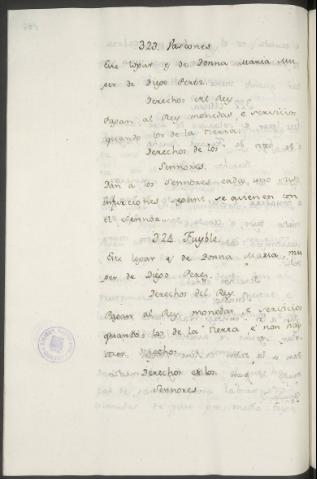 323. Parçones
Este logar es de Donna Maria Mu
ger de Diego Perez.
Derechos del Rey
Pagan al Rey monedas e servicios
quando los de la tierra.
Derechos de los
Sennores.
Dan a los Sennores cada uno
infurciones segunt se avienen con
el Sennor.
324. Fuyble
Este logar es de Donna Maria mu
ger de Diego Perez.
Derechos del Rey
Pagan al Rey monedas e servicios
quando los de la tierra e non hay
otros derechos.
Derechos de los
Sennores